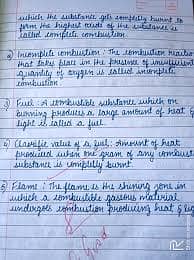 which the substance gets completely burnt to
form the highest oxide of the substance is
called complete combustion.
2) Incomplete combustion : The combustion reaction
that takes place in the presence of insufficient
quantity of oxygen is called incomplete
combustion.
3) Fuel : A combustible substance which on
burning produces a large amount of heat &
light is called a fuel.
4) Calorific value of a fuel : Amount of heat
produced when one gram of any combust
substance is completely burnt.
5) Flame : The flame is the shining zone in
which a combustible gaseous material
undergoes combustion producing heat & lig
Good